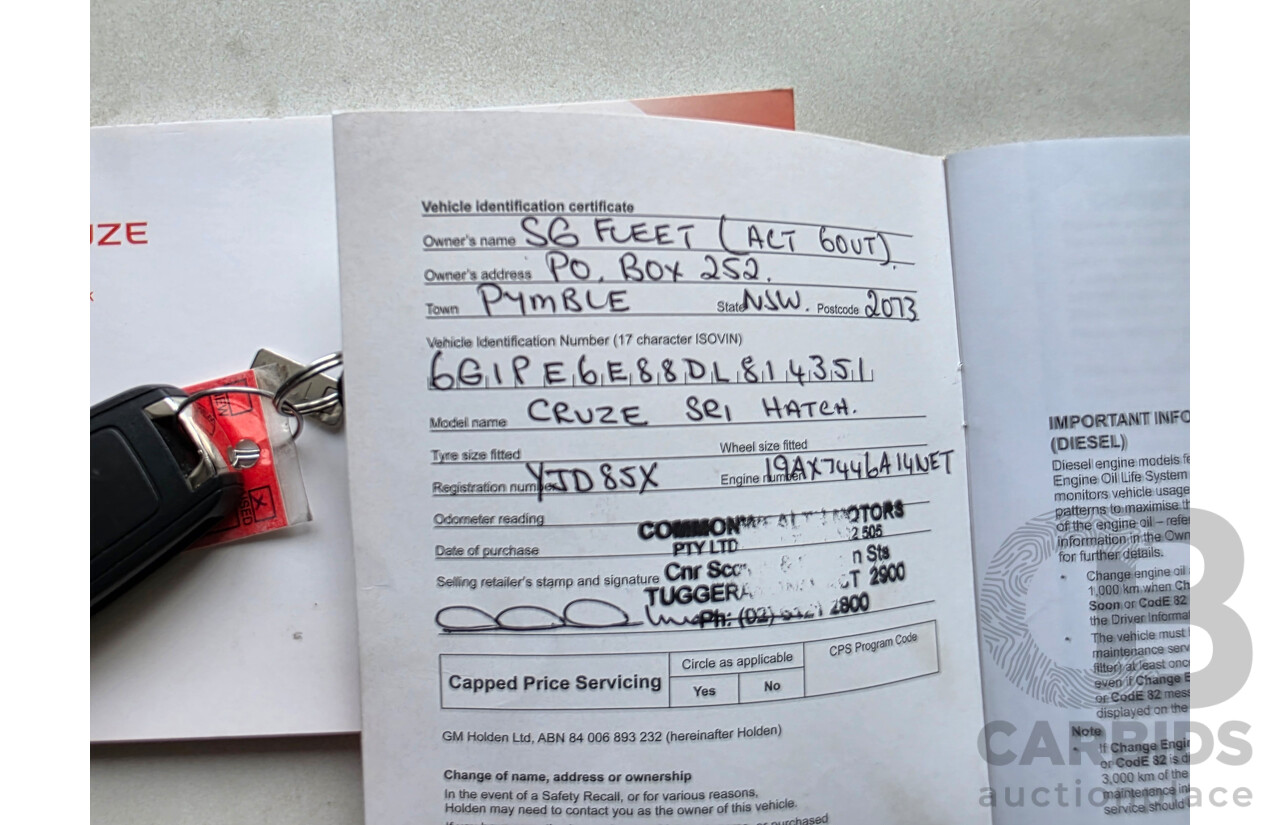 UZE
Vehicle Identification certificate
Owner's name SG FLEET (ACT GOUT).
Owner's address PO. BOX 252.
Town PYMBLE State NSW. Postcode 2073
Vehicle Identification Number (17 character ISOVIN)
6G1PE6E88DL814351
Model name CRUZE SRI HATCH.
Tyre size fitted Wheel size fitted
Registration number YJD85X Engine number 19AX7446A14NET
Odometer reading
COMMONWEALTH MOTORS
PTY LTD 2505
Date of purchase
Cnr n Sts
Selling retailer's stamp and signature
TUGGERA CT 2900
Ph: (02) 2800
Capped Price Servicing
Circle as applicable
Yes No
CPS Program Code
GM Holden Ltd, ABN 84 006 893 232 (hereinafter Holden)
Change of name, address or ownership
In the event of a Safety Recall, or for various reasons,
Holden may need to contact you as the owner of this vehicle.
IMPORTANT INFO
(DIESEL)
Diesel engine models fe
Engine Oil Life System
monitors vehicle usage
patterns to maximise th
of the engine oil – refer
information in the Own
for further details.
• Change engine oil
1,000 km when Ch
Soon or CodE 82
the Driver Informat
• The vehicle must
maintenance serv
filter) at least onc
even if Change E
or CodE 82 mess
displayed on the
Note
• If Change Engin
or CodE 82 is di
3,000 km of the
maintenance in
service should
CARBIDS
auction place